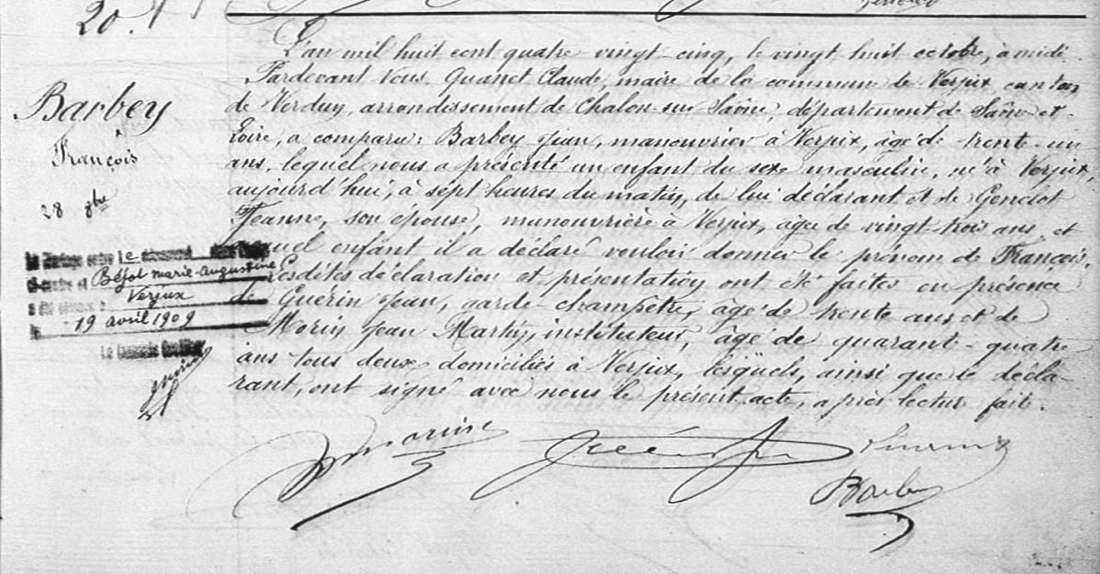 20.
Barbey
François
28 8bre
Le Mariage entre Le dénommé
ci-contre et Béjot marie-Augustine
a été célébré à
Verjux
le 19 avril 1909
L'an mil huit cent quatre vingt cinq, le vingt huit octobre, à midi
Pardevant nous Quanet Claude, maire de la commune de Verjux canton
de Verdun, arrondissement de Chalon-sur Saône, département de Saône-et-
Loire, a comparu: Barbey Jean, manouvrier à Verjux, âgé de trente-un
ans, lequel nous a présenté un enfant du sexe masculin, né à Verjux,
aujourd'hui, à sept heures du matin, de lui déclarant et de Gondot
Jeanne, son épouse, manouvrière à Verjux, âgée de vingt trois ans, et
auquel enfant il a déclaré vouloir donner le prénom de François.
Lesdites déclaration et présentation ont été faites en présence
de Guérin Jean, garde-champêtre, âgé de trente ans et de
Morin Jean Marky, instituteur, âgé de quarant-quatre
ans tous deux domiciliés à Verjux, lesquels, ainsi que le décla-
rant, ont signé avec nous le présent acte, après lecture faite.
Morin
Guérin J
Barbey